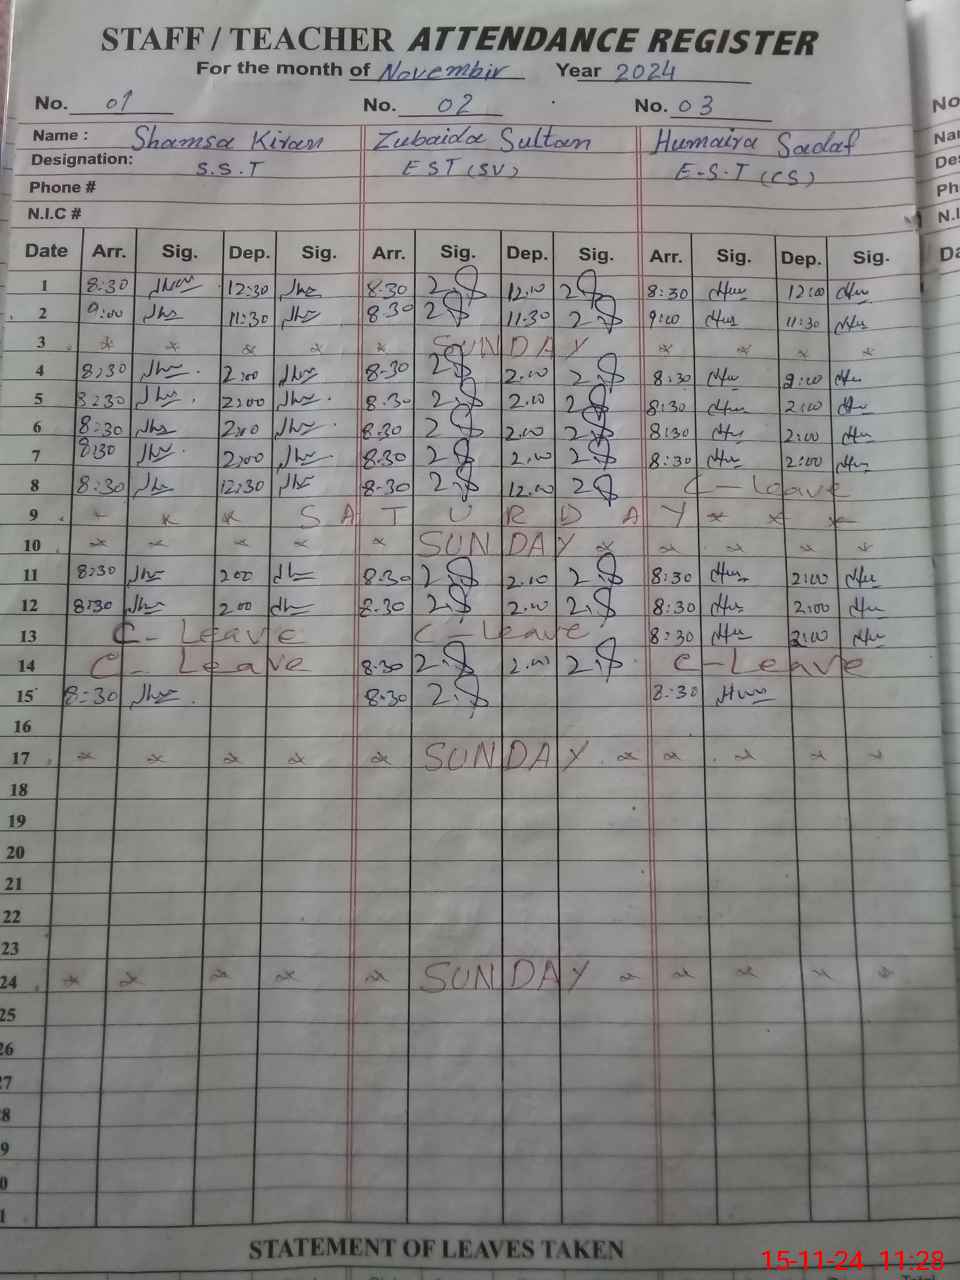 STAFF / TEACHER ATTENDANCE REGISTER
For the month of Novembir Year 2024
No. 01 No. 02 No. 03
Name : Shamsa Kiran Zubaida Sultan Humaira Sadaf
Designation: S.S.T EST (SV) E-S.T (CS)
Phone #
N.I.C #
Date Arr. Sig. Dep. Sig. Arr. Sig. Dep. Sig. Arr. Sig. Dep. Sig.
1 8:30 12:30 8.30 12.00 8:30 12:00
2 9:00 11:30 8.30 11.30 9:00 11:30
3 SUNDAY
4 8:30 2:00 8.30 2.00 8:30 2:00
5 8:30 2:00 8.30 2.00 8:30 2:00
6 8:30 2:00 8.30 2.00 8:30 2:00
7 8:30 2:00 8.30 2.00 8:30 2:00
8 8:30 12:30 8.30 12.00 C-leave
9 SATURDAY
10 SUNDAY
11 8:30 200 8.30 2.00 8:30 2:00
12 8:30 2.00 8.30 2.00 8:30 2:00
13 C-Leave C-Leave 8:30 2:00
14 C-Leave 8.30 2.00 C-Leave
15 8:30 8.30 8:30
16
17 SUNDAY
18
19
20
21
22
23
24 SUNDAY
25
26
27
28
29
30
31
STATEMENT OF LEAVES TAKEN
15-11-24 11:28